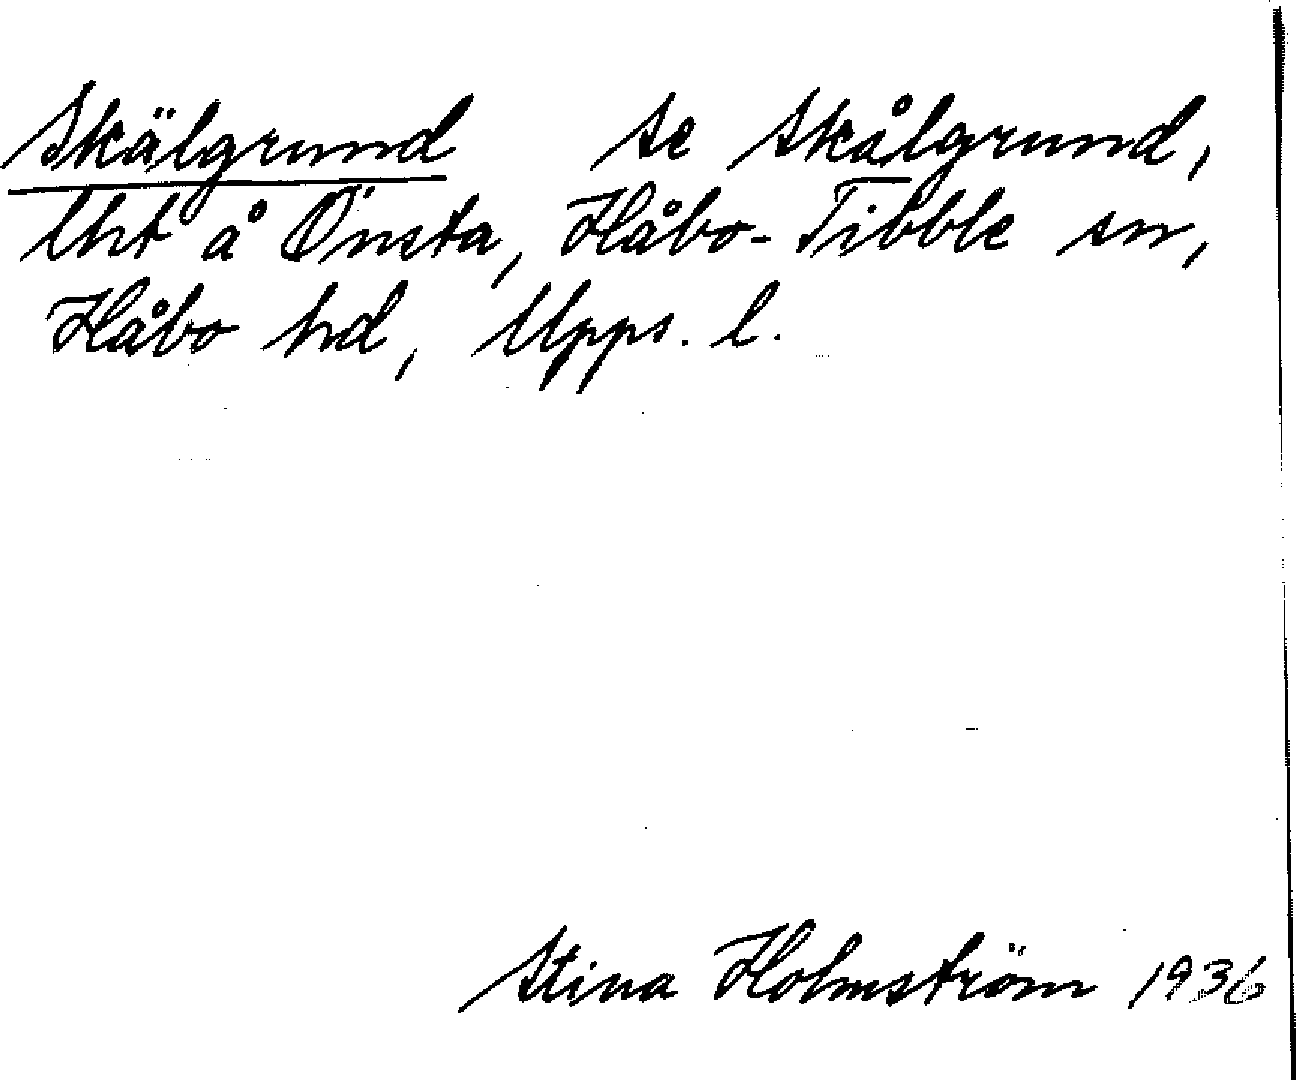 Skälgrund se Skålgrund,
lht å Önsta, Håbo-Tibble sn,
Håbo hd, Upps. l.
Stina Holmström 1936